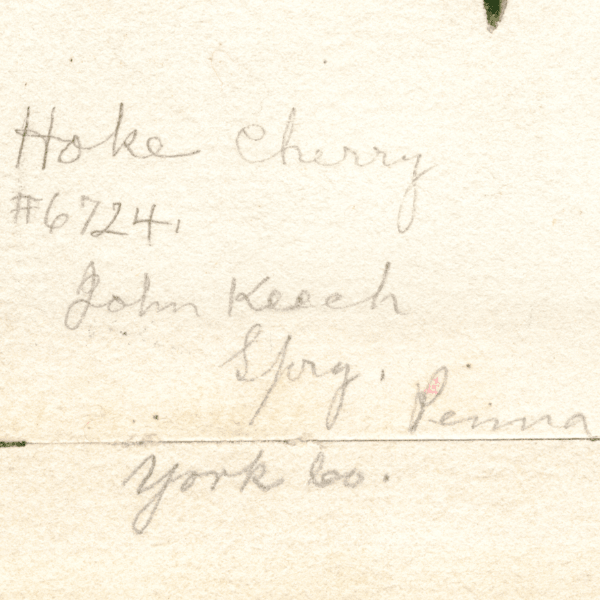 Hoke Cherry
#6724.
John Keech
Spry, Penna
York Co.